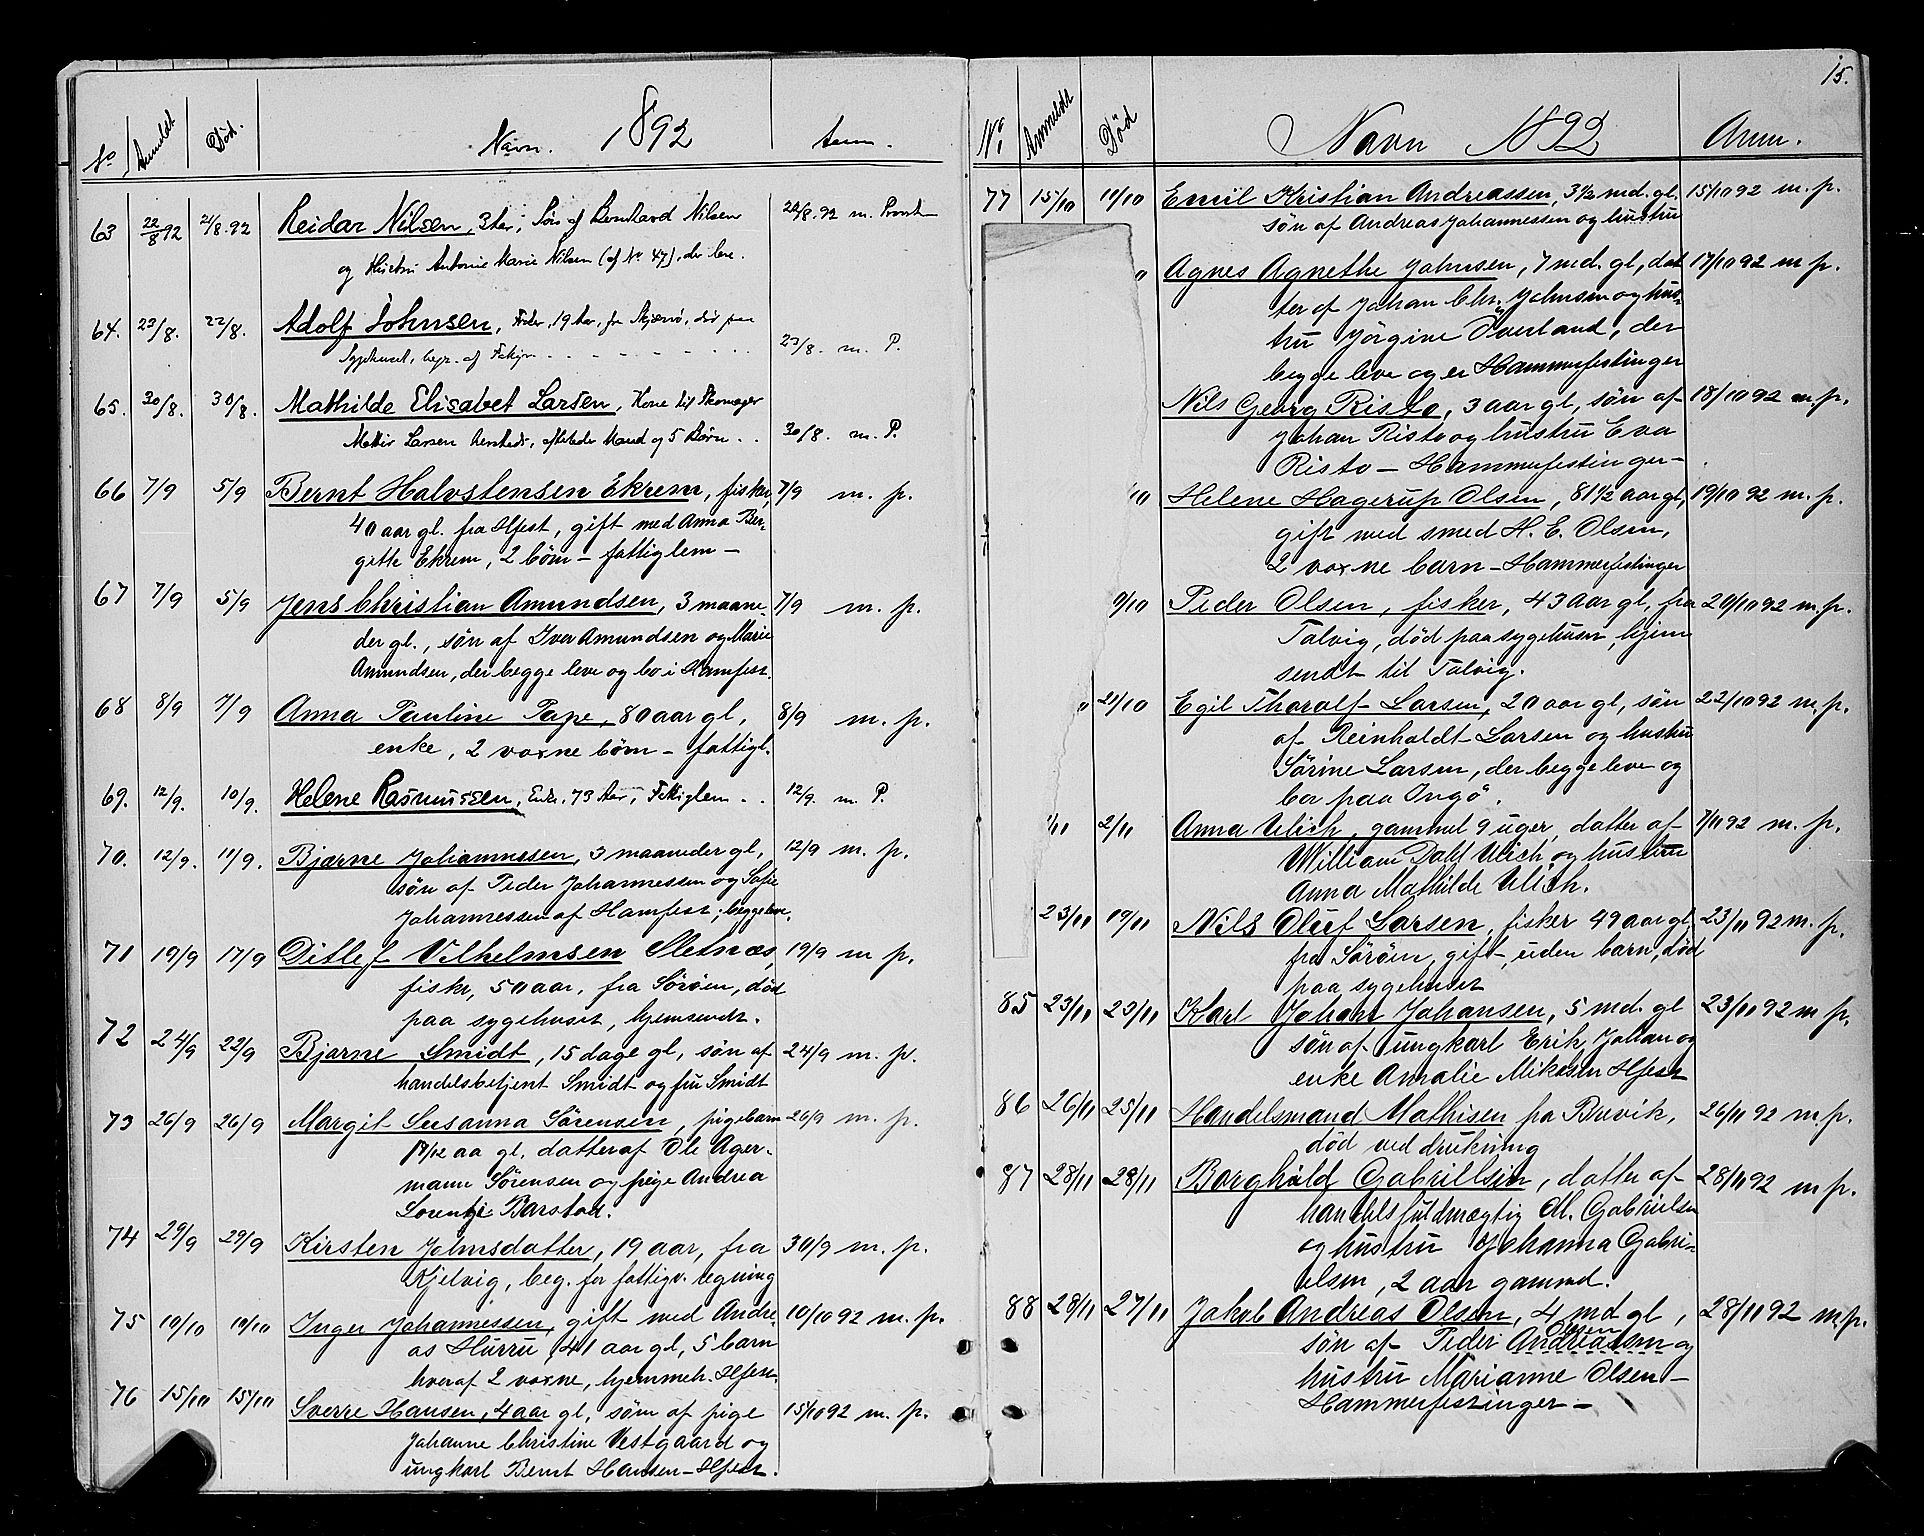 No Anmeldt Død. Navn. 1892 Anm.
63 22/8 92 21/8.92 Reidar Nilsen, 3 Aar, Søn af Bernhard Nilsen 22/8.92 m.
og Hustru Antonie Marie Nilsen (cf No 47), der leve.
64. 23/8. 22/8. Adolf Johnsen, 19 Aar, fra død paa
Sygehuset, 23/8. m. P.
65. 30/8. 30/8. Mathilde Elisabet Larsen, Kone til Skomager
Larsen efterlader Mand og 5 Børn . . 30/8. m. P.
66 7/9 5/9 Bernt Halvstensen Ekrem, fisker, 7/9 m. p.
40 aar gl. fra Hfest, gift med Anna Ber-
gitte Ekrem, 2 børn – fattiglem –
67 7/9 5/9 Jens Christian Amundsen, 3 maane- 7/9 m. p.
der gl., søn af Iver Amundsen og Marie
Amundsen, der begge leve og bo i Hamfest.
68 8/9 7/9 Anna Pauline Pape, 80 aar gl, 8/9 m. p.
enke, 2 voxne børn – fattigl.
69. 12/9. 10/9. Helene Rasmussen, Enke, 73 Aar, Fattiglem . . 12/9. m. P.
70. 12/9. 11/9. Bjarne Johannessen, 3 maaneder gl, 12/9 m. p.
søn af Peder Johannessen og Sofie
Johannessen af Hamfest; begge leve.
71 19/9 17/9 Ditlef Vilhelmsen Sletnæs, 19/9 m p.
fisker, 50 aar, fra Sörøen, död
paa sygehuset, hjemsendt.
72 24/9 22/9 Bjarne Smidt, 15 dage gl, søn af 24/9 m. p.
handelsbetjent Smidt og fru Smidt
73 26/9 26/9 Margit Susanna Sørensen, pigebarn 26/9 m. p.
aa gl. datter af Ole Ager-
mann Sørensen og pige Andrea
Lorentze Barstad.
74 29/9 29/9 Kirsten Johnsdatter, 19 aar, fra 30/9 m. p.
Kjelvig, beg. for fattigv. regning
75 10/10 10/10 Inger Johannessen, gift med Andre- 10/10 92 m. p.
as Hurru, 41 aar gl, 5 barn
hveraf 2 voxne, hjemmeh. Hfest.
76 15/10 15/10 Sverre Hansen, 4 aar gl, søn af pige 15/10 92 m. p.
Johanne Christine Vestgaard og
ungkarl Bernt Hansen – Hfest.
15.
No Anmeldt Død Navn 1892 Anm.
77 15/10 11/10 Emil Kristian Andreassen, 3½ md. gl. 15/10 92 m. p.
søn af Andreas Johannessen og hustru
Agnes Agnethe Johnsen, 7 md. gl, dat 17/10 92 m p.
ter af Johan Chr. Johnsen og hus-
tru Jörgine Överland, der
begge leve og er Hammerfestinger
Nils Georg Risto, 3 aar gl, søn af 18/10 92 m. p.
Johan Risto og hustru Eva
Risto – Hammerfestinger –
/10 Helene Hagerup Olsen, 81½ aar gl, 19/10 92 m. p.
gift med smed H. E. Olsen,
2 voxne barn – Hammerfestinger
/10 Peder Olsen, fisker, 43 aar gl, fra 20/10 92 m. p.
Talvig, död paa sygehuset, hjem
sendt til Talvig.
21/10 Egil Tharalf Larsen, 20 aar gl, søn 22/10 92 m. p.
af Reinholdt Larsen og hustru
Sørine Larsen, der begge leve og
bor paa Ingø.
/11 2/11 Anna Ulich, gammel 9 uger, datter af 7/11 92 m. p.
William Dahl Ulich og hustru
Anna Mathilde Ulich.
23/11 19/11 Nils Oluf Larsen, fisker 49 aar gl, 23/11 92 m. p.
fra Sörøen, gift, uden barn, død
paa sygehuset
85 23/11 23/11 Karl Johan Johansen, 5 md. gl 23/11 92 m p.
søn af ungkarl Erik Johan og
enke Amalie Mikkelsen Hfest
86 26/11 25/11 Handelsmand Mathisen fra Buvik, 26/11 92 m. p.
död ved drukning
87 28/11 28/11 Borghild Gabrillsen, datter af 28/11 92 m p.
handelsfuldmægtig M. Gabrielsen
og hustru Johanna Gabri-
elsen, 2 aar gammel.
88 28/11 27/11 Jakob Andreas Olsen, 4 md gl, 28/11 92 m. p.
søn af Peder Andreassen Olsen og
hustru Marianne Olsen –
Hammerfestinger –